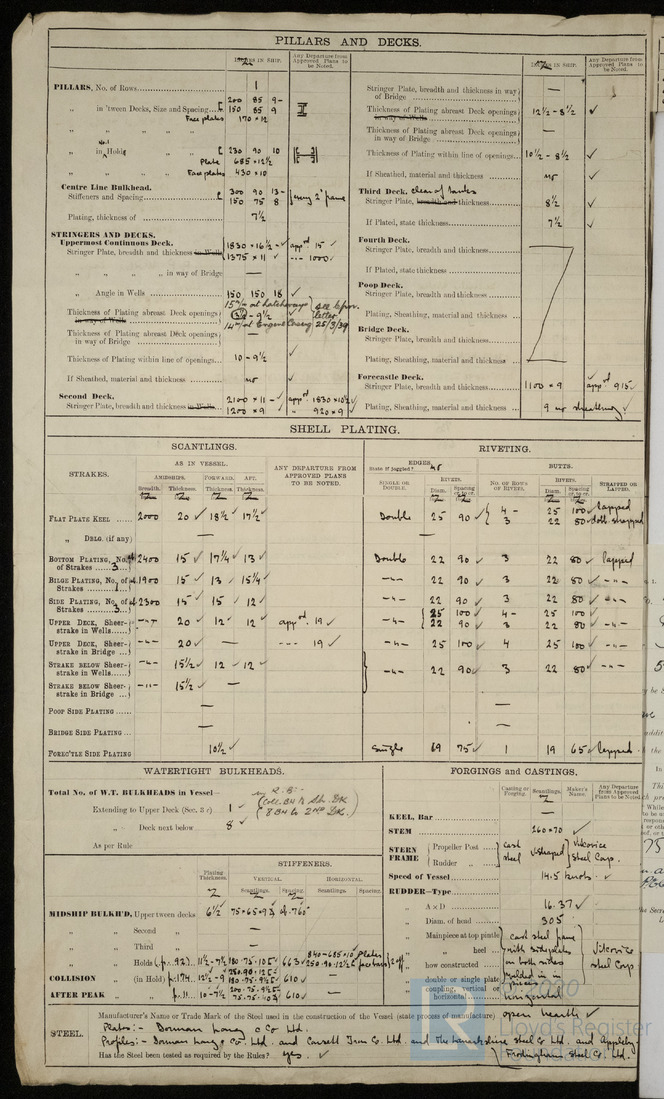 PILLARS AND DECKS.
INCHES IN SHIP.
Any Departure from Approved Plans to be Noted.
PILLARS, No. of Rows 1
„ in 'tween Decks, Size and Spacing 200 85 9
150 85 9
Face plates 170 × 12
„ „ „ „
„ in Holds „ „ 230 90 10
Plate 685 × 12½
„ „ „ Face plates 430 × 10
Centre Line Bulkhead.
Stiffeners and Spacing 300 90 13
150 75 8 every 2nd frame
Plating, thickness of 7½
STRINGERS AND DECKS.
Uppermost Continuous Deck.
Stringer Plate, breadth and thickness in Wells 1830 × 16½ ✓ appd 15 ✓
1375 × 11 ✓ 1000 ✓
„ „ „ „ in way of Bridge —
„ Angle in Wells 150 150 18 ✓
Thickness of Plating abreast Deck openings in way of Wells 15 m/m at hatchways see
9½ letter
14 m/m at Engine Casing 25/3/39
Thickness of Plating abreast Deck openings in way of Bridge —
Thickness of Plating within line of openings 10 - 9½ ✓
If Sheathed, material and thickness no ✓
Second Deck.
Stringer Plate, breadth and thickness in Wells 2100 × 11 ✓ appd 1830 × 10½ ✓
1200 × 9 „ 920 × 9 ✓
INCHES IN SHIP.
Any Departure from Approved Plans to be Noted.
Stringer Plate, breadth and thickness in way of Bridge —
Thickness of Plating abreast Deck openings in way of Wells 12½ - 8½ ✓
Thickness of Plating abreast Deck openings in way of Bridge —
Thickness of Plating within line of openings 10½ - 8½ ✓
If Sheathed, material and thickness no ✓
Third Deck. clear of tanks
Stringer Plate, breadth and thickness 8½ ✓
If Plated, state thickness 7½ ✓
Fourth Deck.
Stringer Plate, breadth and thickness
If Plated, state thickness
Poop Deck.
Stringer Plate, breadth and thickness
Plating, Sheathing, material and thickness
Bridge Deck.
Stringer Plate, breadth and thickness
Plating, Sheathing, material and thickness
Forecastle Deck.
Stringer Plate, breadth and thickness 1100 × 9 appd 915 ✓
Plating, Sheathing, material and thickness 9 no sheathing ✓
SHELL PLATING.
SCANTLINGS.
RIVETING.
STRAKES.
AS IN VESSEL.
AMIDSHIPS. FORWARD. AFT.
Breadth. Thickness. Thickness. Thickness.
ANY DEPARTURE FROM APPROVED PLANS TO BE NOTED.
EDGES.
State if joggled? no
SINGLE OR DOUBLE.
RIVETS.
Diam.
BUTTS.
NO. OF ROWS OF RIVETS.
RIVETS.
Diam.
STRAPPED OR LAPPED.
FLAT PLATE KEEL 2000 20 ✓ 18½ ✓ 17½ ✓ Double 25 90 ✓ 4 - 25 100 ✓ lapped
3 22 80 ✓ doub. strapped
„ DBLG. (if any) — —
BOTTOM PLATING, No. of Strakes 3 2400 15 ✓ 17¼ ✓ 13 ✓ Double 22 90 ✓ 3 22 80 ✓ lapped
BILGE PLATING, No. of Strakes 1 1900 15 ✓ 13 ✓ 15¼ ✓ 22 90 ✓ 3 22 80 ✓
SIDE PLATING, No. of Strakes 3 2300 15 ✓ 15 ✓ 12 ✓ 22 90 ✓ 3 22 80 ✓
UPPER DECK, Sheerstrake in Wells 20 ✓ 12 ✓ 12 ✓ appd 19 ✓ 25 100 ✓ 4 - 25 100 ✓
22 90 ✓ 3 22 80 ✓
UPPER DECK, Sheerstrake in Bridge 20 ✓ — 19 ✓ 25 100 ✓ 4 25 100 ✓
STRAKE BELOW Sheerstrake in Wells 15½ ✓ 12 ✓ 12 ✓ 22 90 ✓ 3 22 80 ✓
STRAKE BELOW Sheerstrake in Bridge 15½ ✓ —
POOP SIDE PLATING — —
BRIDGE SIDE PLATING — —
FOREC'TLE SIDE PLATING 10½ ✓ Single 19 75 ✓ 1 19 65 ✓ lapped
WATERTIGHT BULKHEADS.
Total No. of W.T. BULKHEADS in Vessel—
Extending to Upper Deck (Sec. 3 c) 1 ✓ Coll. BH to Sh. DK
„ Deck next below 8 ✓ 8 BH to 2ND DK.
As per Rule
Plating Thickness.
STIFFENERS.
VERTICAL. HORIZONTAL.
Scantlings. Spacing. Scantlings. Spacing.
MIDSHIP BULKH'D, Upper tween decks 6½ 75·65·9½ 760
„ Second „ —
„ Third „ —
„ Holds (fr. 92) 11½-7½ 180·75·10½ 663 ✓
COLLISION „ (in Hold) fr. 174 12½-9 180·75·9½ 610 ✓
AFTER PEAK „ „ fr. 11 10-7½ 610 ✓
FORGINGS and CASTINGS.
Casting or Forging.
Scantlings.
Maker's Name.
Any Departure from Approved Plans to be Noted.
KEEL, Bar —
STEM 260 × 70 ✓
STERN FRAME Propeller Post cast steel V shaped Vitkovice Steel Corp.
Rudder „
Speed of Vessel 14.5 knots ✓
RUDDER—Type
„ A × D 16.37 ✓
„ Diam. of head 305
„ Mainpiece at top pintle cast steel piece
„ „ heel with sideplates
„ how constructed on both sides
„ double or single plate welded in
„ coupling, vertical or horizontal horizontal
Vitkovice Steel Corp
STEEL.
Manufacturer's Name or Trade Mark of the Steel used in the construction of the Vessel (state process of manufacture) open hearth ✓
Plates:- Dorman Long & Co Ltd.
Profiles:- Dorman Long & Co. Ltd. and Consett Iron Co. Ltd. and the Lanarkshire Steel Co Ltd. and Appleby-
Frodingham Steel Co Ltd.
Has the Steel been tested as required by the Rules? yes. ✓
2020
Lloyd's Register
Foundation